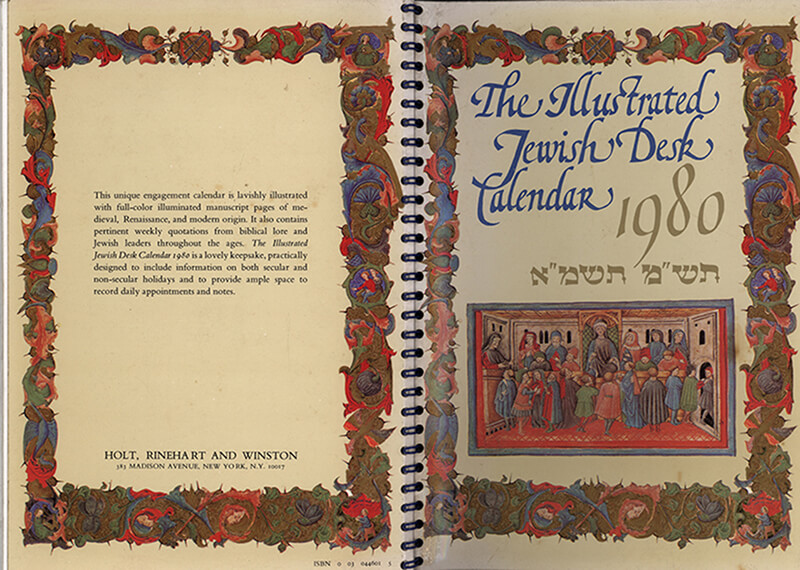 This unique engagement calendar is lavishly illustrated
with full-color illuminated manuscript pages of me-
dieval, Renaissance, and modern origin. It also contains
pertinent weekly quotations from biblical lore and
Jewish leaders throughout the ages. The Illustrated
Jewish Desk Calendar 1980 is a lovely keepsake, practically
designed to include information on both secular and
non-secular holidays and to provide ample space to
record daily appointments and notes.
HOLT, RINEHART AND WINSTON
383 MADISON AVENUE, NEW YORK, N.Y. 10017
ISBN 0 03 044601 5
The Illustrated
Jewish Desk
Calendar 1980
תש"מ תשמ"א